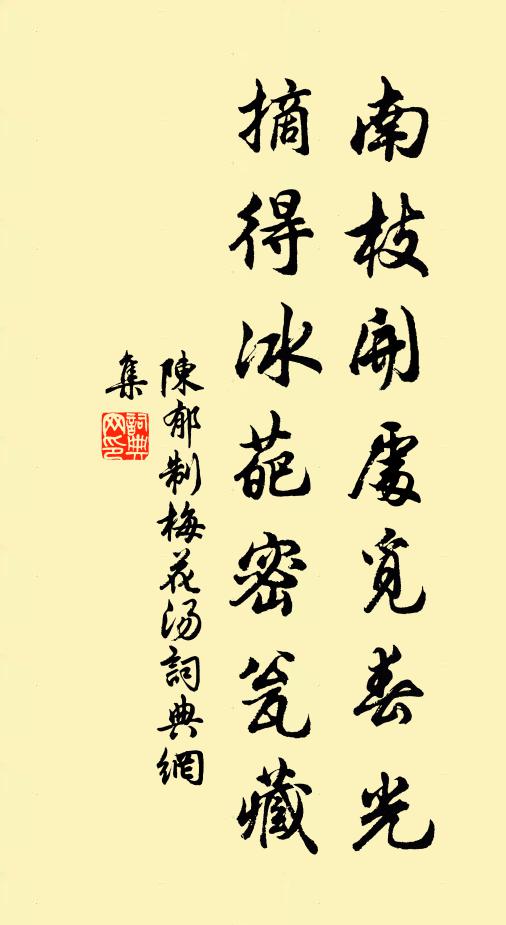 南枝開處覓春光
摘得冰葩密瓮藏
陳郁制梅花汤詞典網
集
詞典
网印